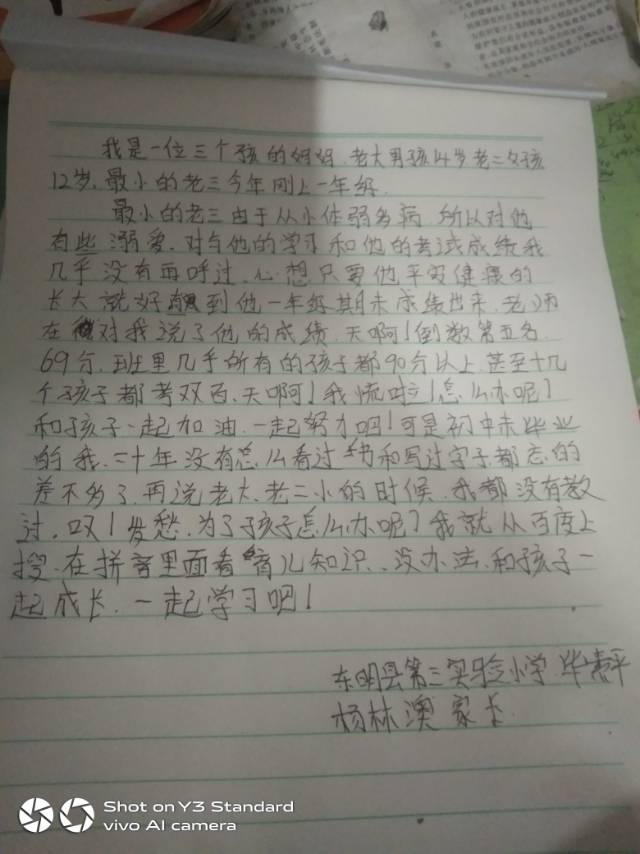 我是一位三个孩的妈妈.老大男孩14岁老二女孩
12岁.最小的老三今年刚上一年级.
最小的老三由于从小体弱多病.所以对他
有些溺爱.对与他的学习和他的考试成绩我
几乎没有再呼过.心想只要他平安健康的
长大就好 到他一年级期末成绩出来.老师
在 对我说了他的成绩.天啊!倒数第五名.
69分.班里几乎所有的孩子都90分以上.甚至十几
个孩子都考双百.天啊!我慌啦!怎么办呢?
和孩子一起加油.一起努力吧!可是初中未毕业
的我.二十年没有怎么看过书和写过字子都忘的
差不多了.再说老大.老二小的时候.我都没有教
过.叹!发愁.为了孩子怎么办呢?我就从百度上
搜.在拼多里面看育儿知识.没办法.和孩子一
起成长.一起学习吧!
东明县第三实验小学.毕 平
杨林澳 家长
Shot on Y3 Standard
vivo AI camera